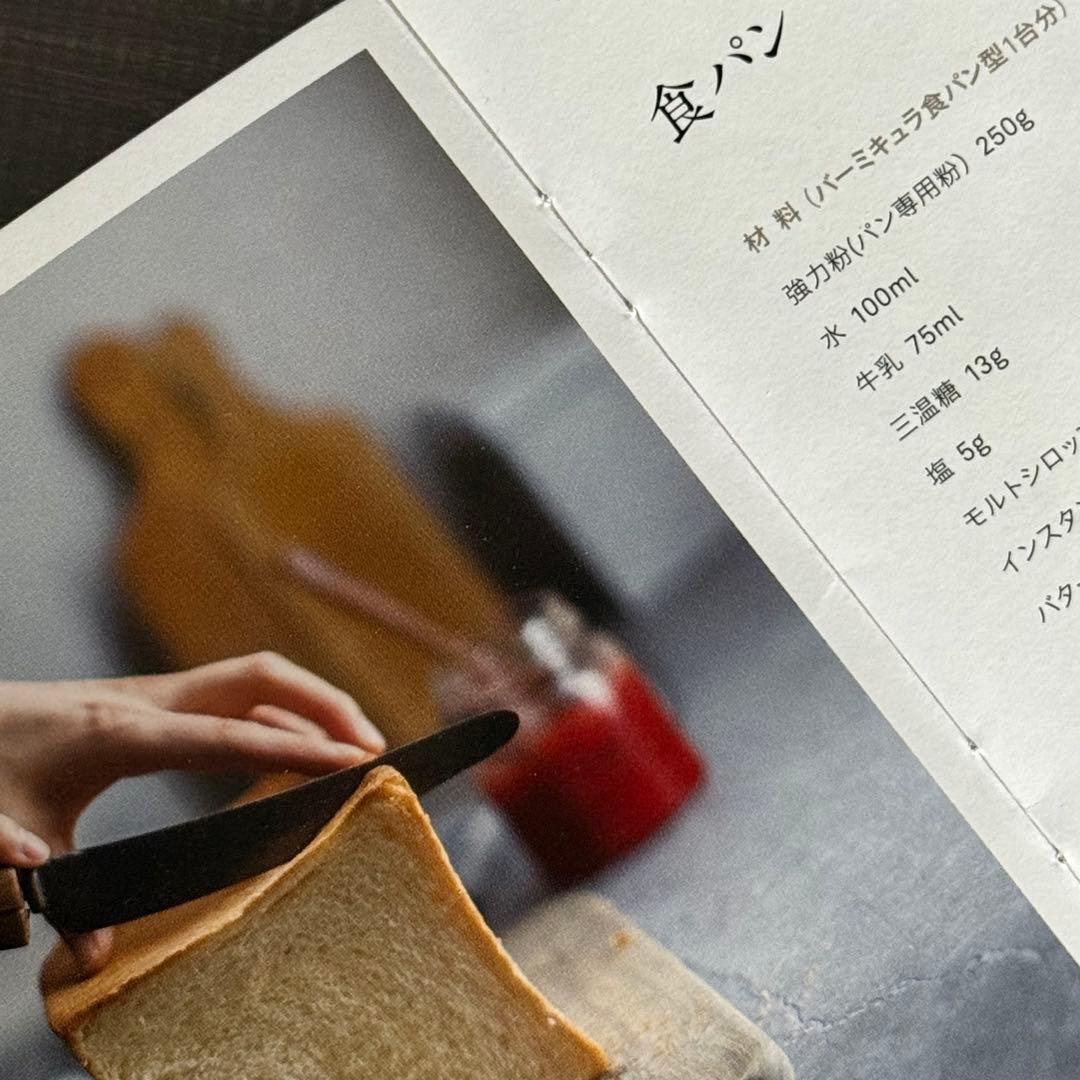 食パン
材 料 (バーミキュラ食パン型1台分)
強力粉(パン専用粉) 250g
水 100ml
牛乳 75ml
三温糖 13g
塩 5g
モルトシロッ
インスタ
バター